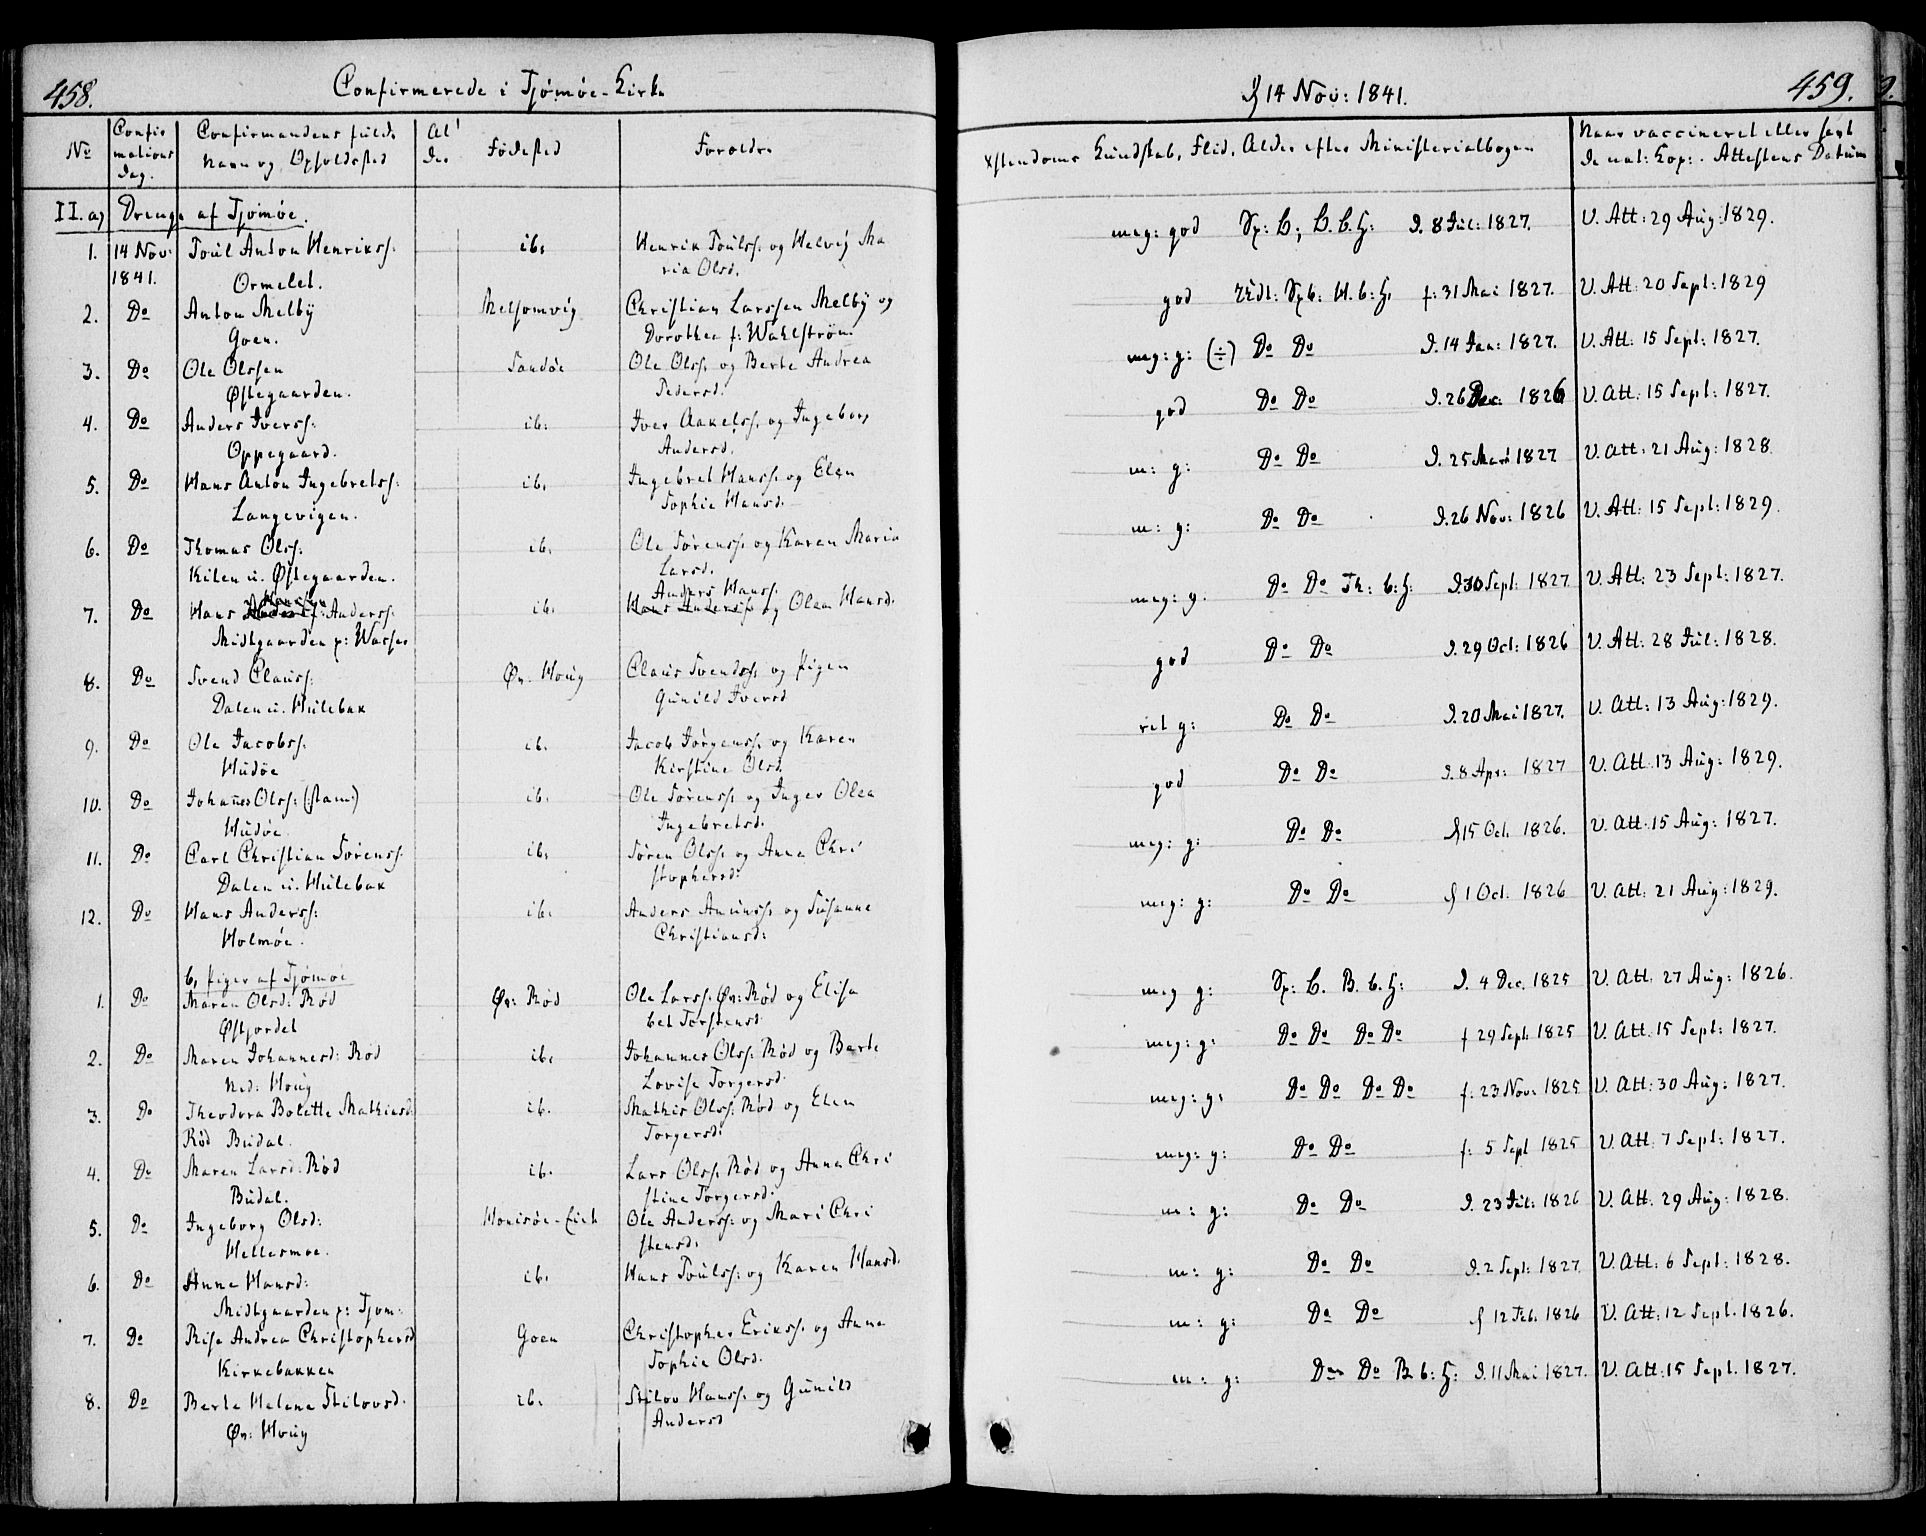 458.
Confirmerede i Tjømøe-Kirke
No
Confir
mations
Dag.
Confirmandens fulde
Navn og Opholdsted
Al
der
Fødested
Forældre
II. a) Drenge af Tjømøe.
1. 14 Nov: Poul Anton Henrikss: ib. Henrik Poulss. og Helvig Ma
1841. Ormelet. ria Olsd.
2. Do Anton Melby Melsomvig Christian Larssen Melby og
Goen. Dorothea f: Wahlstrøm.
3. Do Ole Olssen Sandøe Ole Olss. og Berte Andrea
Østegaarden. Pedersd.
4. Do Anders Iverss: ib: Iver Aakelss. og Ingeborg
Oppegaard. Andersd.
5. Do Hans Anton Ingebretss: ib. Ingebret Hanss. og Elen
Langevigen. Sophie Hansd.
6. Do Thomas Olss: ib. Ole Sørenss. og Karen Maria
Kilen u. Østegaarden. Larsd.
Hanssen Anders Hanss.
7. Do Hans Anderss: ib. Hans Anderss og Olea Hansd.
Midtgaarden p: Wasser
8. Do Svend Clauss: Øv. Houg Claus Svendss. og Pigen
Dalen u. Hulebak Gunild Iversd
9. Do Ole Jacobss: ib. Jacob Jørgenss. og Karen
Hudøe Kirstine Olsd.
10. Do Johannes Olss: (stam.) ib. Ole Sørenss. og Inger Olea
Hudøe Ingebretsd.
11. Do Carl Christian Sørenss. ib. Søren Olss. og Anne Chri
Dalen u. Hulebak stophersd.
12. Do Hans Anderss: ib. Anders Amunss. og Susanne
Holmøe. Christiansd:
b, Piger af Tjømøe
1. Do Maren Olsd: Rød Øv: Rød Ole Larss. Øv: Rød og Elisa
Østjordet bet Torstensd.
2. Do Maren Johannesd: Rød ib. Johannes Olss: Rød og Berte
Ned: Houg Lovise Torgersd.
3. Do Theodora Bolette Mathiesd. ib. Mathis Olss: Rød og Elen
Rød Budal. Torgersd:
4. Do Maren Larsd: Rød ib. Lars Olss. Rød og Anne Chri
Budal. stine Torgersd.
5. Do Ingeborg Olsd: Ole Anderss: og Mari Chri
Hellesmoe. stensd:
6. Do Anne Hansd: ib. Hans Poulss: og Karen Hansd.
Midtgaarden p: Tjøm:
7. Do Rise Andrea Christophersd Goen Christopher Erikss. og Anne
Kirkebakken Sophie Olsd.
8. Do Berte Helene Stilovsd. ib. Stilov Hanss. og Gunild
Øv: Houg Andersd
d 14 Nov: 1841.
459.
Xstendoms Kundskab, Flid, Alder efter Ministerialbogen
Naar vaccineret eller havt
de nat: Kop: . Attestens Datum
meg: god Sp: C; B. b. H: d. 8 Jul: 1827. V. Att: 29 Aug: 1829.
god f: 31 Mai 1827. V. Att: 20 Sept: 1829
meg: g: (÷) Do Do d. 14 Jan: 1827. V. Att: 15 Sept: 1827.
god Do Do d. 26 Dec: 1826 V. Att: 15 Sept: 1827.
m: g: Do Do d. 25 Mars 1827 V. Att: 21 Aug: 1828.
m: g: Do Do d. 26 Nov: 1826 V. Att: 15 Sept: 1829.
meg: g: Do Do Th: b: H: d. 30 Sept: 1827 V. Att: 23 Sept: 1827.
god Do Do d. 29 Oct: 1826 V. Att: 28 Jul: 1828.
ret g: Do Do d. 20 Mai 1827. V. Att: 13 Aug: 1829.
god Do Do d. 8 Apr: 1827 V. Att: 13 Aug: 1829.
meg: g: Do Do d 15 Oct. 1826. V. Att: 15 Aug: 1827.
meg: g: Do Do d 1 Oct. 1826 V. Att: 21 Aug: 1829.
meg g: Sp: C. B. b. H: d. 4 Dec. 1825 V. Att: 27 Aug: 1826.
meg: g: Do Do Do Do f 29 Sept. 1825 V. Att: 15 Sept: 1827.
meg: g: Do Do Do Do f: 23 Nov: 1825 V. Att: 30 Aug: 1827.
meg: g: Do Do f: 5 Sept 1825 V. Att: 7 Sept: 1827.
m: g: Do Do d. 23 Jul: 1826 V. Att. 29 Aug: 1828.
m: g: Do Do d. 2 Sept: 1827. V. Att: 6 Sept: 1828.
m: g: Do Do d 12 Feb. 1826 V. Att: 12 Sept. 1826.
m: g: Do Do B b: H: d. 11 Mai 1827. V. Att: 15 Sept. 1827.